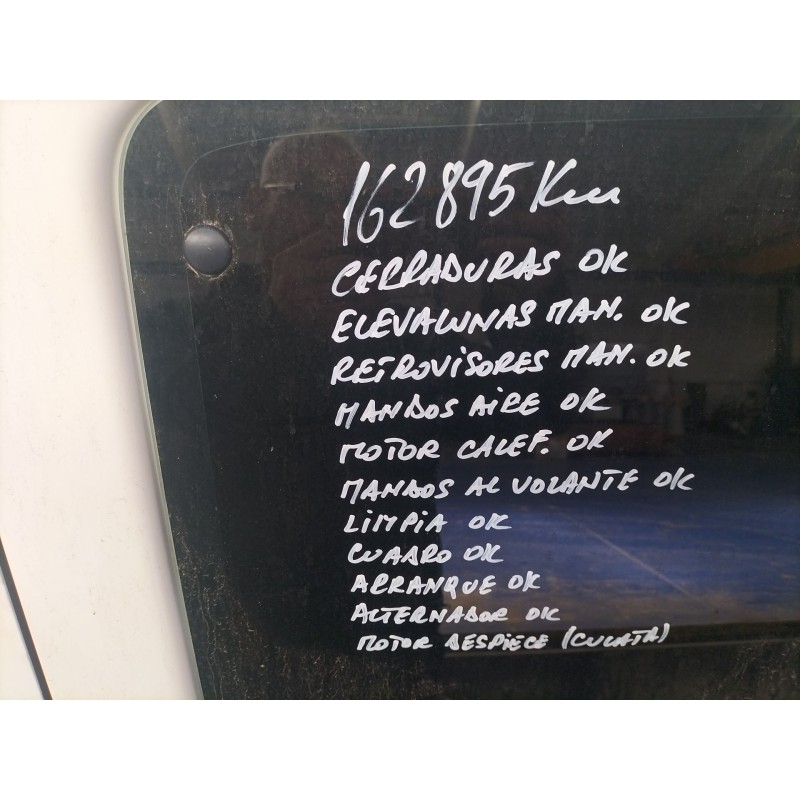 162895 Km
CERRADURAS OK
ELEVALUNAS MAN. OK
RETROVISORES MAN. OK
MANDOS AIRE OK
MOTOR CALEF. OK
MANDOS AL VOLANTE OK
LIMPIA OK
CUADRO OK
ARRANQUE OK
ALTERNADOR OK
MOTOR DESPIECE (CULATA)